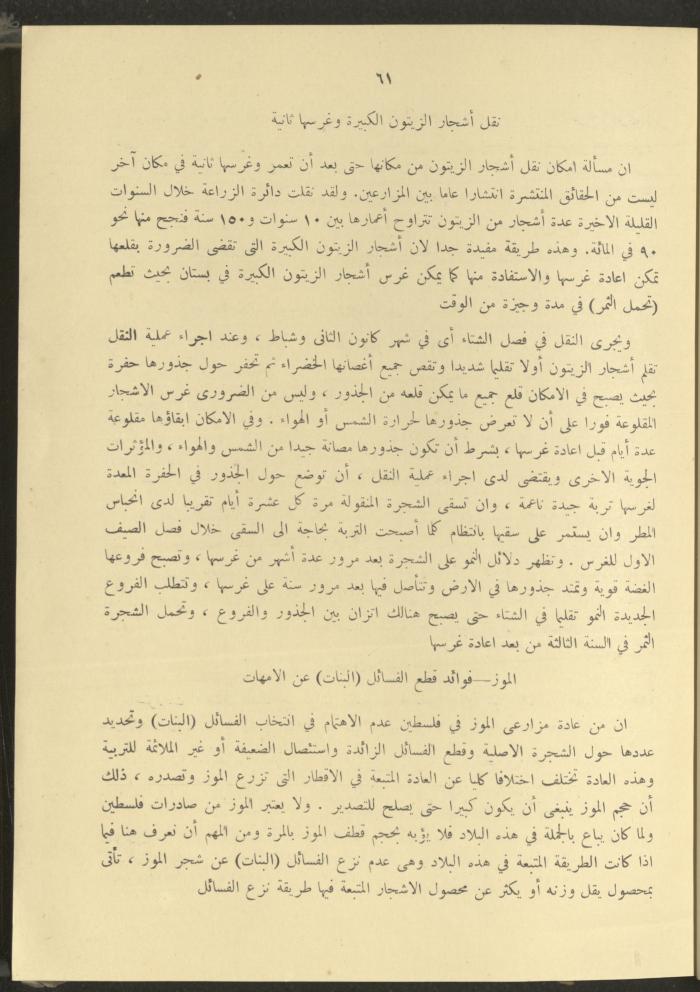 ٦١
نقل أشجار الزيتون الكبيرة وغرسها ثانية
ان مسألة امكان نقل أشجار الزيتون من مكانها حتى بعد أن تعمر وغرسها ثانية في مكان آخر
ليست من الحقائق المنتشرة انتشارا عاما بين المزارعين. ولقد نقلت دائرة الزراعة خلال السنوات
القليلة الاخيرة عدة أشجار من الزيتون تتراوح أعمارها بين ١٠ سنوات و١٥٠ سنة فنجح منها نحو
٩٠ في المائة. وهذه طريقة مفيدة جدا لان أشجار الزيتون الكبيرة التى تقضى الضرورة بقلعها
تمكن اعادة غرسها والاستفادة منها كما يمكن غرس أشجار الزيتون الكبيرة في بستان بحيث تطعم
(تحمل الثمر) في مدة وجيزة من الوقت
ويجرى النقل في فصل الشتاء أى في شهر كانون الثانى وشباط ، وعند اجراء عملية النقل
تقلم أشجار الزيتون أولا تقليما شديدا وتقص جميع أغصانها الخضراء ثم تحفر حول جذورها حفرة
بحيث يصبح في الامكان قلع جميع ما يمكن قلعه من الجذور ، وليس من الضرورى غرس الاشجار
المقلوعة فورا على أن لا تعرض جذورها لحرارة الشمس أو الهواء . وفي الامكان ابقاؤها مقلوعة
عدة أيام قبل اعادة غرسها ، بشرط أن تكون جذورها مصانة جيدا من الشمس والهواء ، والمؤثرات
الجوية الاخرى ويقتضى لدى اجراء عملية النقل ، أن توضع حول الجذور في الحفرة المعدة
لغرسها تربة جيدة ناعمة ، وان تسقى الشجرة المنقولة مرة كل عشرة أيام تقريبا لدى انحباس
المطر وان يستمر على سقيها بانتظام كلما أصبحت التربة بحاجة الى السقى خلال فصل الصيف
الاول للغرس . وتظهر دلائل النمو على الشجرة بعد مرور عدة أشهر من غرسها ، وتصبح فروعها
الغضة قوية وتمتد جذورها في الارض وتتأصل فيها بعد مرور سنة على غرسها ، وتتطلب الفروع
الجديدة النمو تقليما في الشتاء حتى يصبح هنالك اتزان بين الجذور والفروع ، وتحمل الشجرة
الثمر في السنة الثالثة من بعد اعادة غرسها
الموز—فوائد قطع الفسائل (البنات) عن الامهات
ان من عادة مزارعى الموز في فلسطين عدم الاهتمام في انتخاب الفسائل (البنات) وتحديد
عددها حول الشجرة الاصلية وقطع الفسائل الزائدة واستئصال الضعيفة أو غير الملائمة للتربية
وهذه العادة تختلف اختلافا كليا عن العادة المتبعة في الاقطار التى تزرع الموز وتصدره ، ذلك
أن حجم الموز ينبغى أن يكون كبيرا حتى يصلح للتصدير . ولا يعتبر الموز من صادرات فلسطين
ولما كان يباع بالجملة في هذه البلاد فلا يؤبه بحجم قطف الموز بالمرة ومن المهم أن نعرف هنا فيما
اذا كانت الطريقة المتبعة في هذه البلاد وهى عدم نزع الفسائل (البنات) عن شجر الموز ، تأتى
بمحصول يقل وزنه أو يكثر عن محصول الاشجار المتبعة فيها طريقة نزع الفسائل